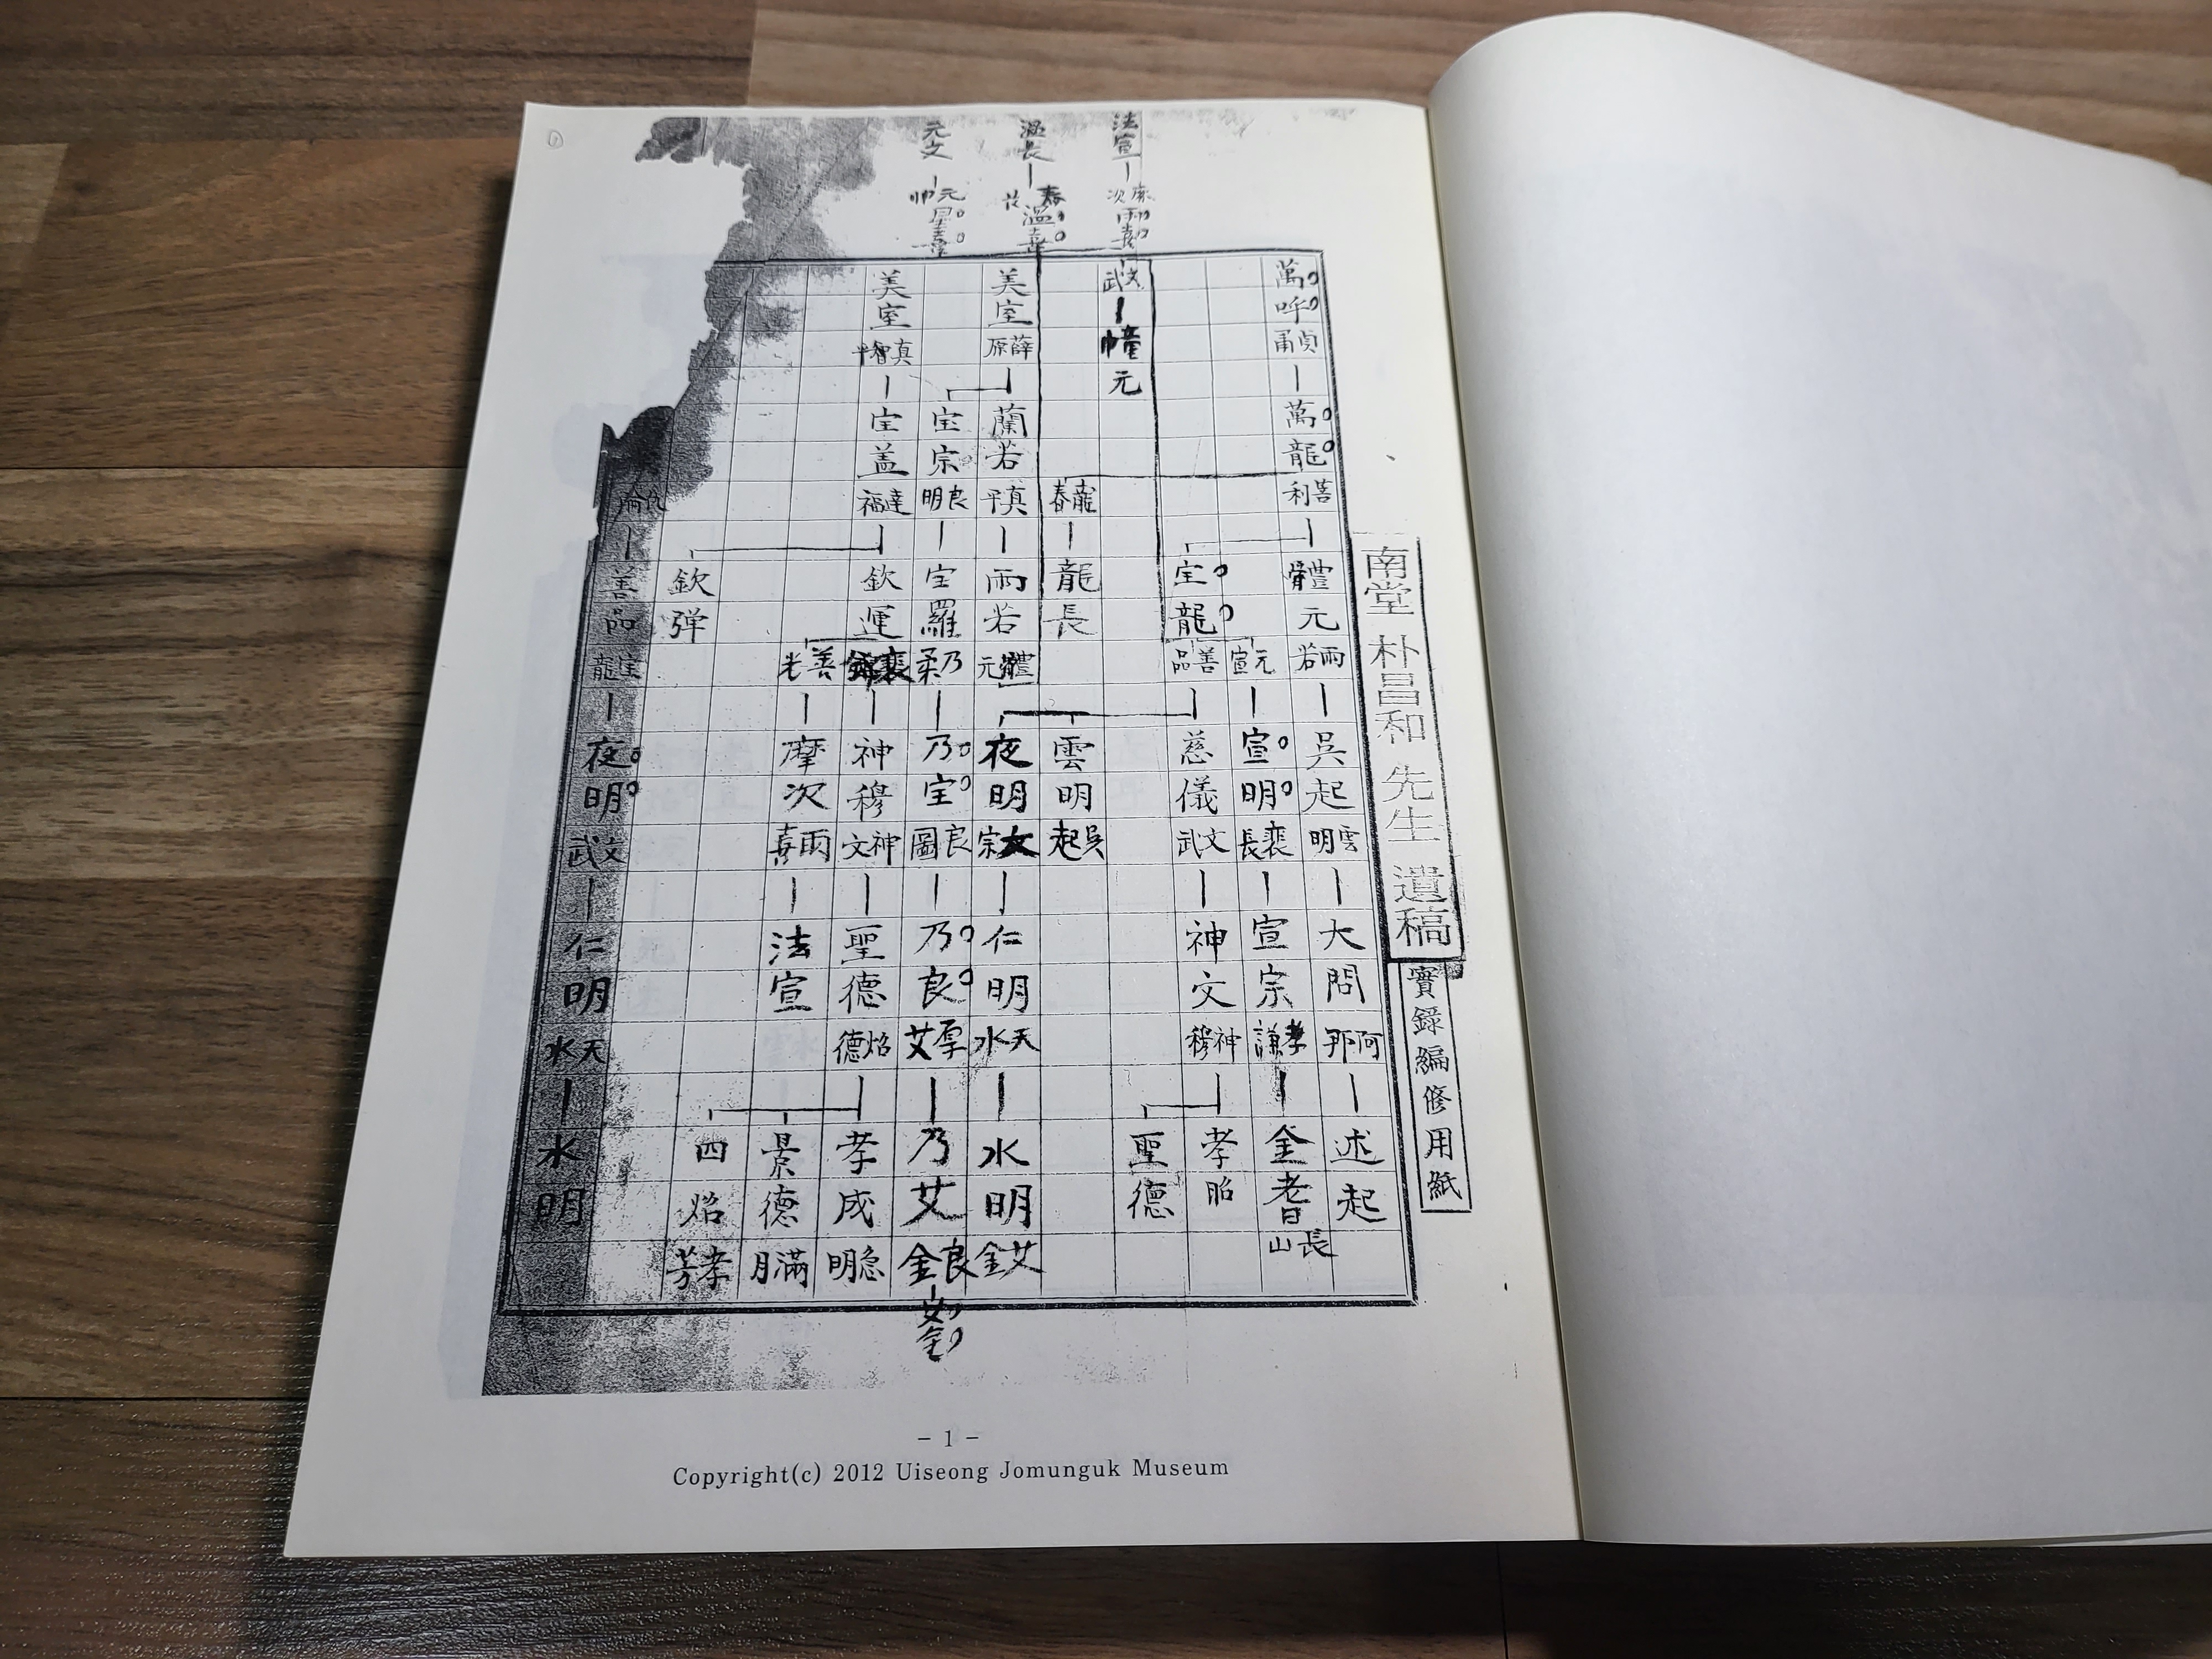 南堂 朴昌和 先生 遺稿
實錄編修用紙
萬呼 貞甬 萬龍 菩利 體元 雨若 吳起 雲明 大問 阿那 述起
元宣 宣明 裴長 宣宗 孝謙 金耆 長山
宝龍 善品 慈儀 文武 神文 神穆 孝昭
聖德
法宣 雨喜 文武 幢元
龍春 龍長 雲明 吳起
温長 温喜
美室 薛原 蘭若 真平 雨若 體元 夜明 仁明 天水 水明 艾金
元文 元帥 星喜
宝宗 良明 宝羅 乃柔 乃宝 良圖 乃良 厚艾 乃艾 良金 艾金
美室 真 宝盖 達福 欽運 神穆 神文 聖德 焰德 孝成 急明
善光 摩次 雨喜 法宣
景德 滿月
欽弹
四焰 孝芳
善品 宝龍 夜明 文武 仁明 天水 水明
- 1 -
Copyright(c) 2012 Uiseong Jomunguk Museum